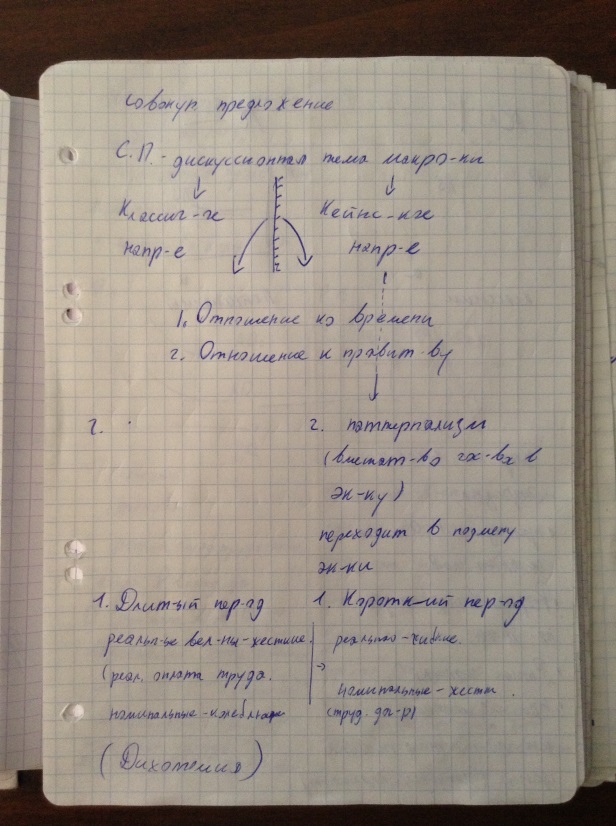 Совокуп. предложение
С.П. - дискуссионная тема макро-ки
Классич-ое Кейнс-кое
напр-е напр-е
1. Отношение ко времени
2. Отношение к правит-ву
2. 2. паттернализм
(вмешат-во гос-ва в
эк-ку)
переходит в подмену
эк-ки
1. Длит-ый пер-од 1. Коротк-ий пер-од
реальн-ые вел-ны-жесткие. реально-гибкие.
(реал. оплата труда. номинальные-жестк.
номинальные-колеблющ (труд. дог-р)
(Дихотомия)